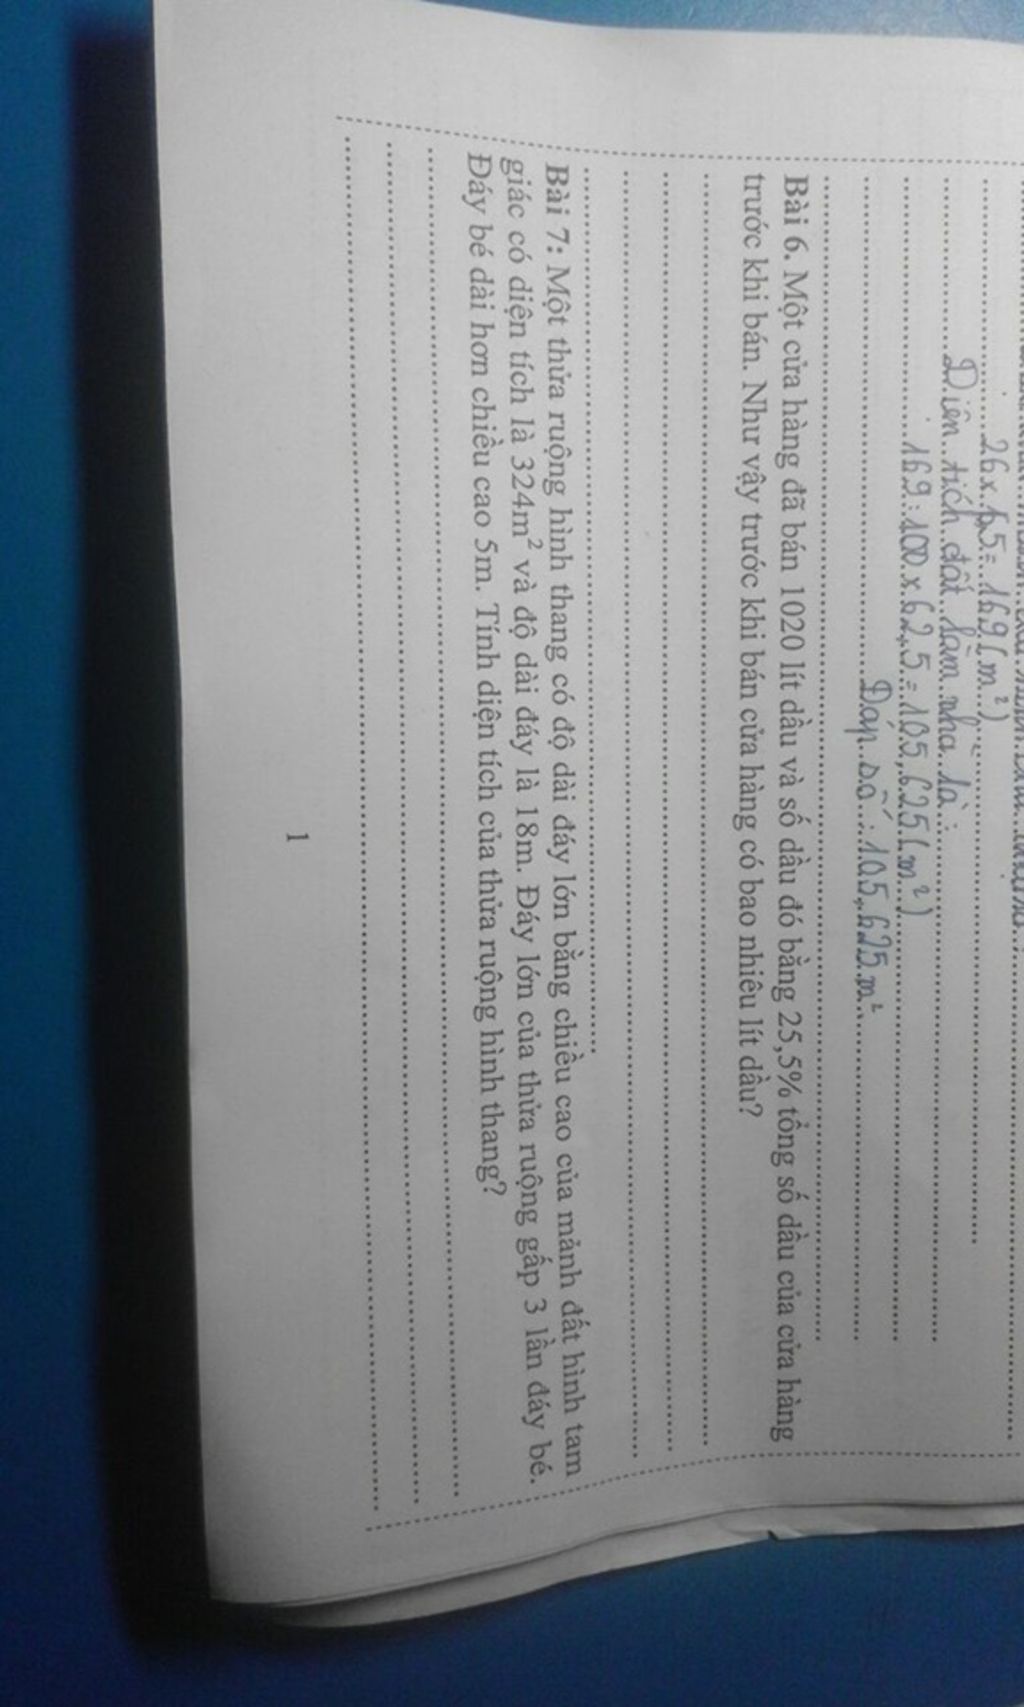 26 x 6,5 = 169 (m²)
Diện tích đất làm nhà là:
169 : 100 x 62,5 = 105,625 (m²)
Đáp số : 105,625 m²
Bài 6. Một cửa hàng đã bán 1020 lít dầu và số dầu đó bằng 25,5% tổng số dầu của cửa hàng
trước khi bán. Như vậy trước khi bán cửa hàng có bao nhiêu lít dầu?
Bài 7: Một thửa ruộng hình thang có độ dài đáy lớn bằng chiều cao của mảnh đất hình tam
giác có diện tích là 324m² và độ dài đáy là 18m. Đáy lớn của thửa ruộng gấp 3 lần đáy bé.
Đáy bé dài hơn chiều cao 5m. Tính diện tích của thửa ruộng hình thang?
1